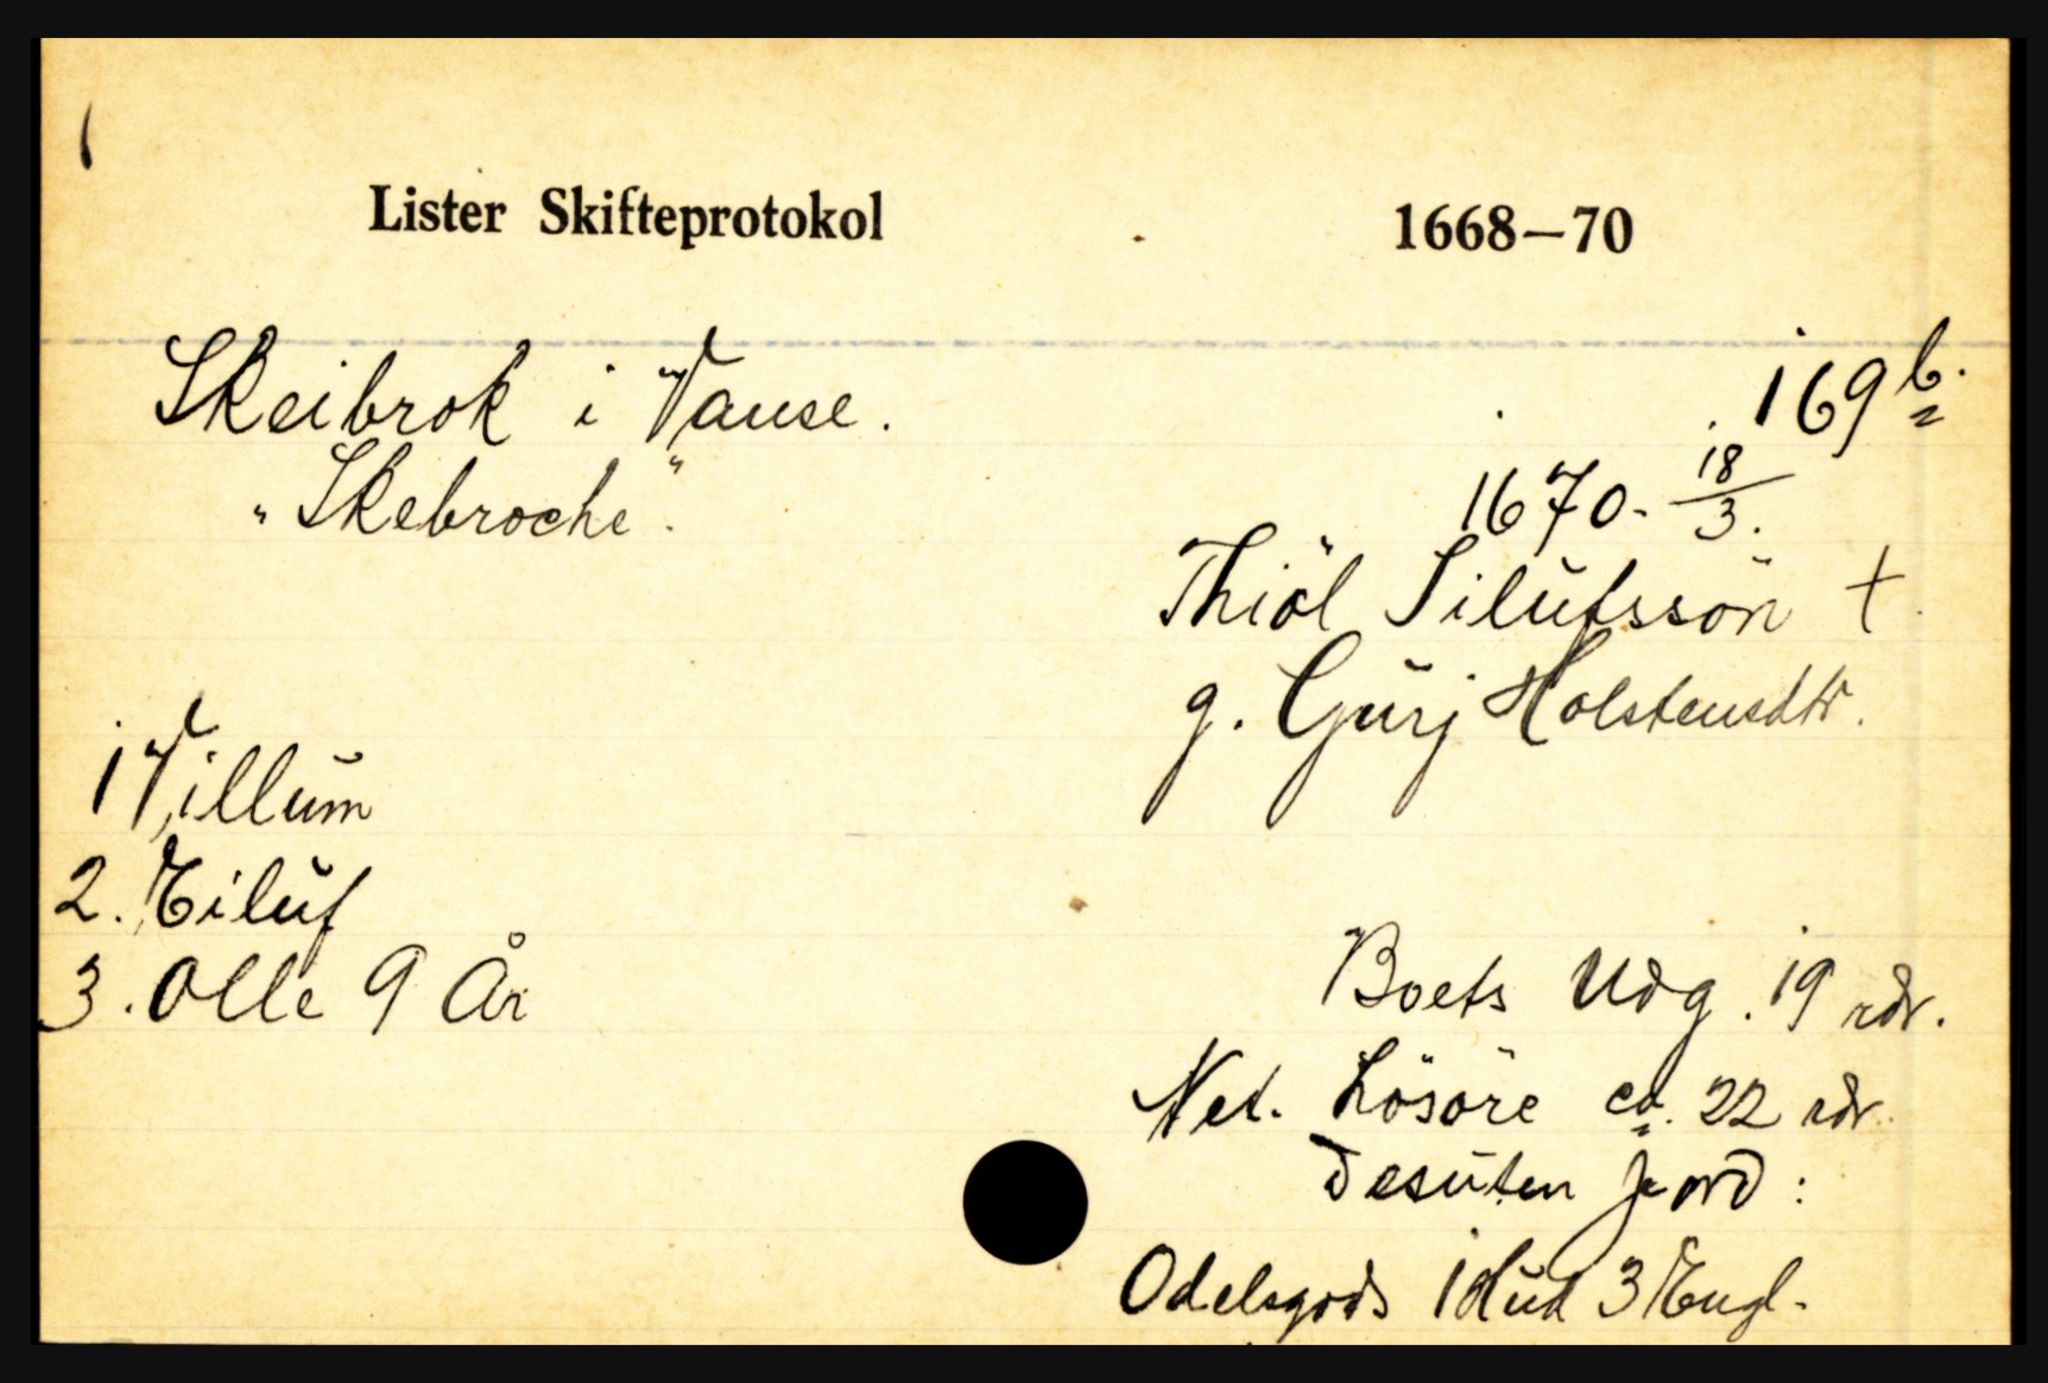 Lister Skifteprotokol 1668—70
Skeibrok i Vanse. 169 b.
"Skebroche". 1670 - 18/3.
Thiöl Silufssön +
g. Gurj Holstensdtr.
1 Villum
2. Eiluf
3. Olle 9 År
Boets Udg. 19 rdr.
Net. Lösöre ca. 22 rdr.
Desuten Jord:
Odelsgods 1 Hud 3 Engl.